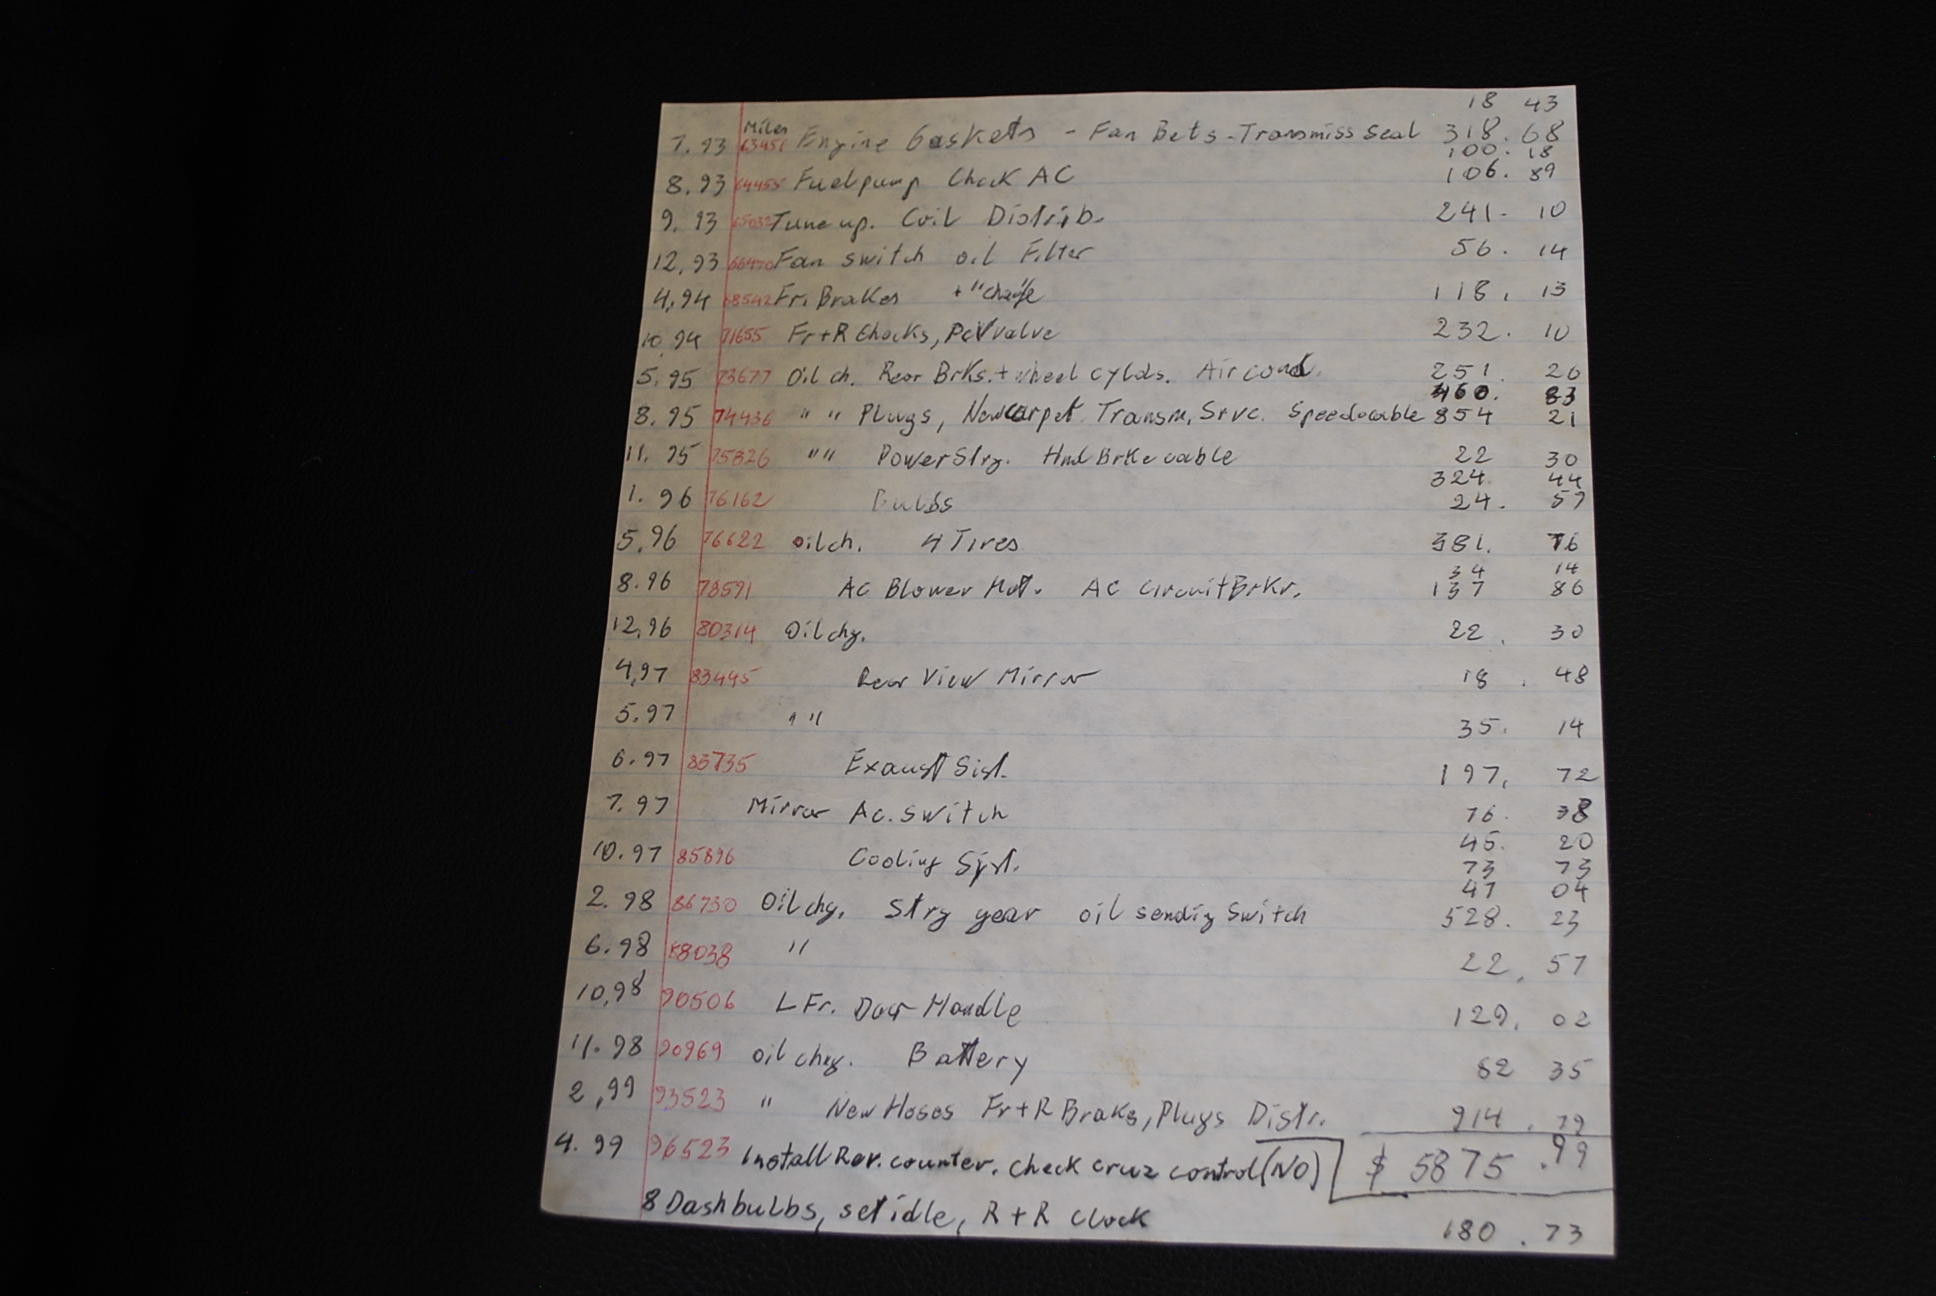 18 43
Miles
7.93 63451 Engine Gaskets - Fan Bets - Transmiss Seal 318.68
100.18
8.93 64455 Fuelpump Check AC 106.89
9.93 65032 Tune up. Coil Distrib. 241- 10
12,93 66470 Fan switch oil Filter 56. 14
4,94 68542 Fr. Brakes + "change 118, 13
10,94 71655 Fr+R Chocks, PcV valve 232. 10
5.95 73677 Oil ch. Rear Brks.+ wheel cylds. Air cond. 251. 20
460. 83
8.95 74436 " " Plugs, New carpet Transm, Srvc. Speedocable 354 21
11.95 75826 "" Power Strg. Hnd Brke cable 22 30
324. 44
1.96 76162 Bulbs 24. 57
5,96 76622 oil ch. 4 Tires 381. 76
34 14
8.96 78591 Ac Blower Mot. AC Circuit Brkr. 137 86
12,96 80314 Oil chg. 22. 30
4,97 83445 Rear View Mirror 18. 48
5.97 " " 35. 14
6.97 83735 Exaust Sist. 197, 72
7.97 Mirror Ac. Switch 76. 38
45. 20
10.97 85896 Cooling Syst. 73 73
47 04
2.98 86730 Oil chg, Strg gear oil sendig Switch 528. 23
6.98 88038 " 22, 57
10,98 90506 L Fr. Door Handle 129, 02
11.98 90969 oil chg. Battery 62 35
2,99 93523 " New Hoses Fr+R Braks, Plugs Distr. 914.79
4.99 96523 Install Rev. counter. Check cruz control (NO) $ 5875.99
8 Dashbulbs, set idle, R+R Clock 180.73